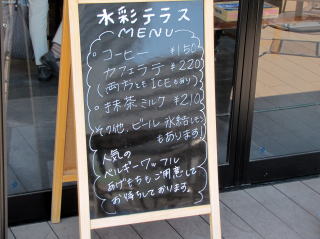 水彩テラス
MENU
コーヒー ¥150
カフェラテ ¥220
(両方ともICEもあり)
抹茶ミルク ¥210
その他、ビール 氷結(しも)
もあります
人気の
ベルギーワッフル
あげもちもご用意して
お待ちしております。